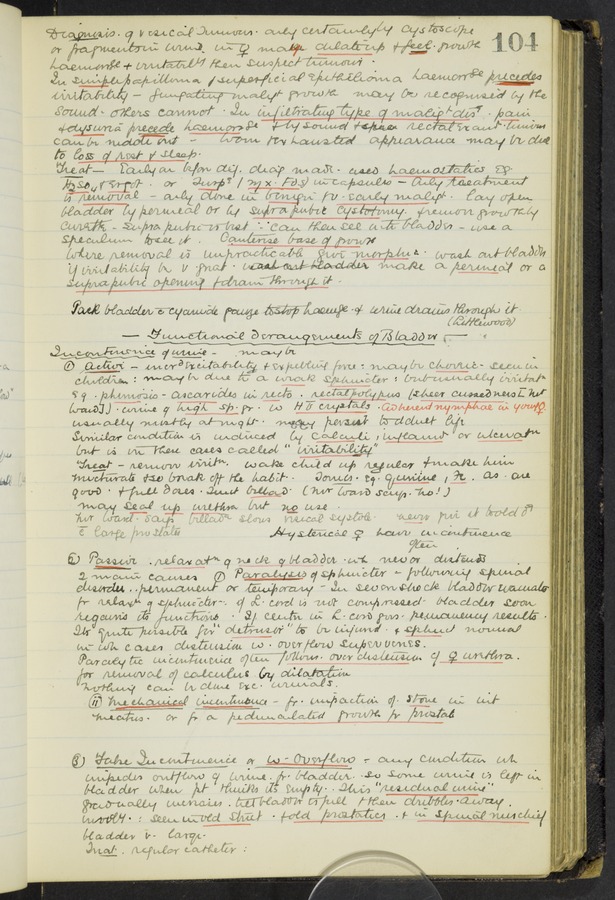 Diagnosis of vesical Tumours. only certainly by Cystoscope
104
or fragments in urine. in ♀ may dilate up & feel growth
haemorrhe & irritabilty then suspect tumour.
In simple papilloma / superficial epithelioma haemorrge precedes
irritability - fungating maligt growth may be recognised by the
sound. others cannot. In infiltrating type of malig. dis. pain
& dysuria precede haemorrge & by sound & rectal exam tumour
can be made out - worn & exhausted appearance may be due
to loss of rest & sleep.
Treat - Early on before dig. diag made. used haemostatics eg
H2SO4 & Ergot. or Turps in capsules - Only treatment
is removal - only done in benign or early malig. Lay open
bladder by perineal or by suprapubic cystotomy. & remove growth by
curette. Suprapubic is best ∵ can then see into bladder - use a
speculum to see it. Cauterise base of growth
Where removal is unpracticable give morphia. wash out bladder
if irritability be v great. wash out bladder make a perineal or a
suprapubic opening & drain through it.
Pack bladder c cyanide gauze to stop haemge. & urine drains through it.
(Littlewood)
- Functional derangements of Bladder -
Incontinence of urine - may be
① Active - incrd excitability & expelling force: may be chronic - seen in
children: may be due to a weak sphincter: but usually irritatn
eg. phimosis - ascarides in recto. rectal polypus (sheer cussedness
Ward]) urine of high sp. gr. c crystals. adherent nymphae in young ♀
usually mostly at night. may persist to adult life
Similar condition is induced by calculi, inflamd or ulceratn
but is in these cases called "irritability"
Treat - remove irritn. wake child up regular & make him
micturate & so break off the habit. Tonics eg. quinine, Fe. as. are
good. & full doses. Tinct bellad (nor Ward says. no!)
may seal up urethra but no use.
Mr Ward says bellad slows vesical systole. never give it to old
c large prostates
Hysterical ♀ have incontinence
often
② Passive. relaxatn of neck of bladder. wh never distends
2 main causes ① Paralysis of sphincter - following spinal
disorder. permanent or temporary - In severe shock bladder evacuates
fr relaxn of sphincter. if L. cord is not compressed. bladder soon
regains its functions. If center in L. cord goes. permanency results.
Its quite possible for "detrusor" to be injured & sphinct normal
in wh cases distension c. overflow supervenes.
Paralytic incontinence often follows over distension of ♀ urethra.
for removal of calculus by dilatation
nothing can be done exc. urinals.
ⅱ Mechanical incontinence - fr. impaction of stone in int
meatus. or fr a pedunculated growth fr prostate
③ False Incontinence or c-overflow = any condition wh
impedes outflow of urine fr. bladder. so some urine is left in
bladder when pt thinks its empty. This "residual urine"
gradually increases. till bladder is full & then dribbles away.
involy: seen in old Strict. & old prostatics. & in spinal mischief
bladder v. large.
Treat. regular catheter: